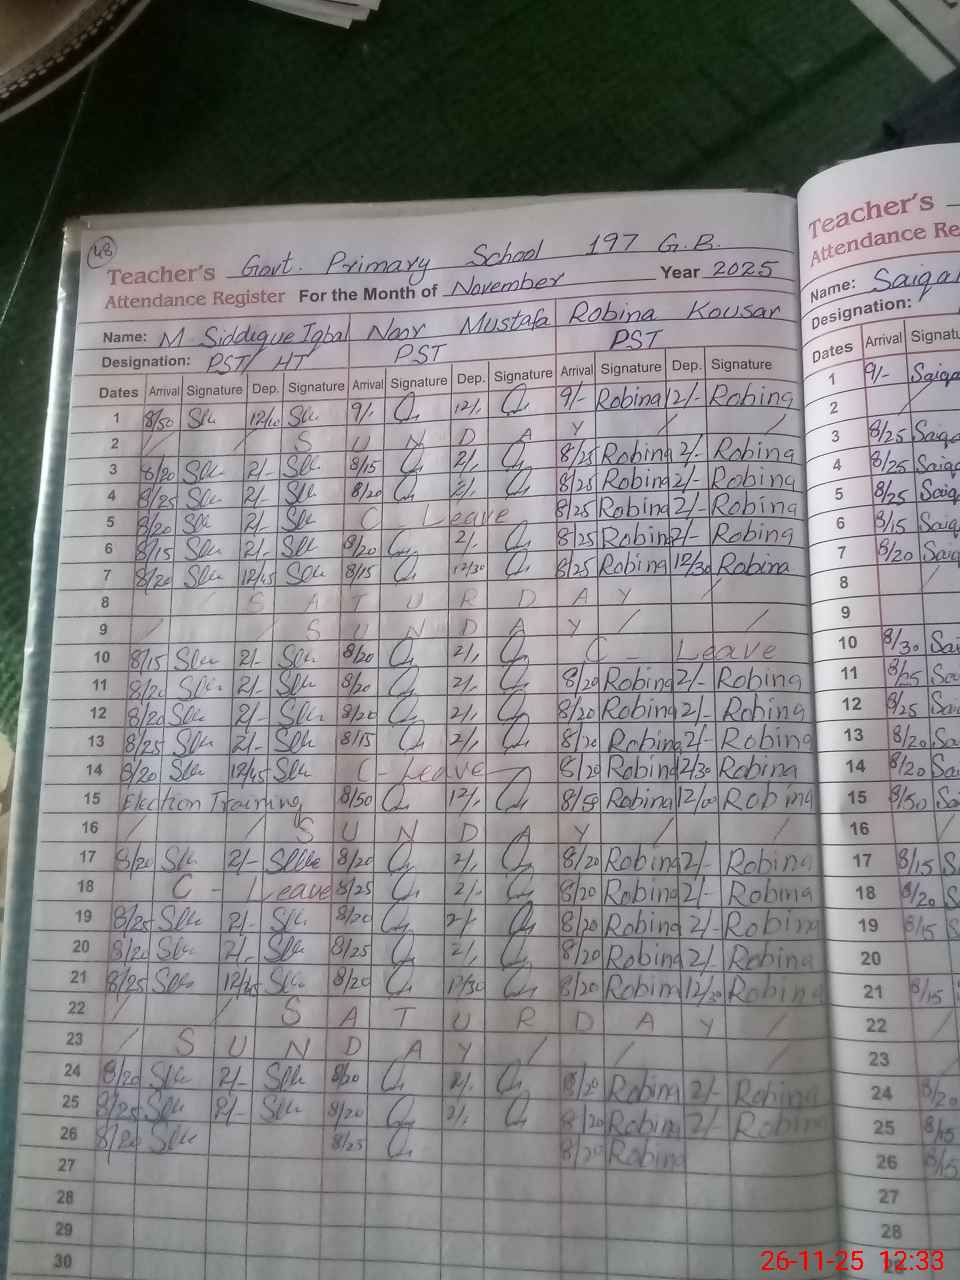 48
Teacher's Govt. Primary School 197 G.B.
Attendance Register For the Month of November Year 2025
Name: M Siddique Iqbal Noor Mustafa Robina Kousar
Designation: PST/HT PST PST
Dates Arrival Signature Dep. Signature Arrival Signature Dep. Signature Arrival Signature Dep. Signature
1 8/50 12/10 9/- 12/- 9/- Robina 12/- Robina
2 S U N D A Y
3 8/20 2/- 8/15 2/- 8/25 Robina 2/- Robina
4 8/25 2/- 8/20 2/- 8/25 Robina 2/- Robina
5 8/20 2/- C - Leave 8/25 Robina 2/- Robina
6 8/15 2/- 8/20 2/- 8/25 Robina 2/- Robina
7 8/20 12/45 8/15 12/30 8/25 Robina 12/30 Robina
8 S A T U R D A Y
9 S U N D A Y
10 8/15 2/- 8/20 2/- C - Leave
11 8/20 2/- 8/20 2/- 8/20 Robina 2/- Robina
12 8/20 2/- 8/20 2/- 8/20 Robina 2/- Robina
13 8/25 2/- 8/15 2/- 8/20 Robina 2/- Robina
14 8/20 12/45 C - Leave 8/20 Robina 12/30 Robina
15 Election Training 8/50 12/- 8/50 Robina 12/00 Robina
16 S U N D A Y
17 8/20 2/- 8/20 2/- 8/20 Robina 2/- Robina
18 C - Leave 8/25 2/- 8/20 Robina 2/- Robina
19 8/25 2/- 8/20 2/- 8/20 Robina 2/- Robina
20 8/20 2/- 8/25 2/- 8/20 Robina 2/- Robina
21 8/25 12/45 8/20 12/30 8/20 Robina 12/30 Robina
22 S A T U R D A Y
23 S U N D A Y
24 8/20 2/- 8/20 2/- 8/20 Robina 2/- Robina
25 8/25 2/- 8/20 2/- 8/20 Robina 2/- Robina
26 8/20 8/25 8/20 Robina
27
28
29
30
Teacher's
Attendance Re
Name: Saiqa
Designation:
Dates Arrival Signatu
1 9/- Saiqa
2
3 8/25 Saiq
4 8/25 Saiq
5 8/25 Saiq
6 8/15 Saiq
7 8/20 Saiq
8
9
10 8/30 Sai
11 8/25 Sa
12 8/25 Sa
13 8/20 Sa
14 8/20 Sa
15 8/50 Sa
16
17 8/15 S
18 8/20 S
19 8/15 S
20
21 8/15
22
23
24 8/20
25 8/15
26 8/15
27
28
26-11-25 12:33